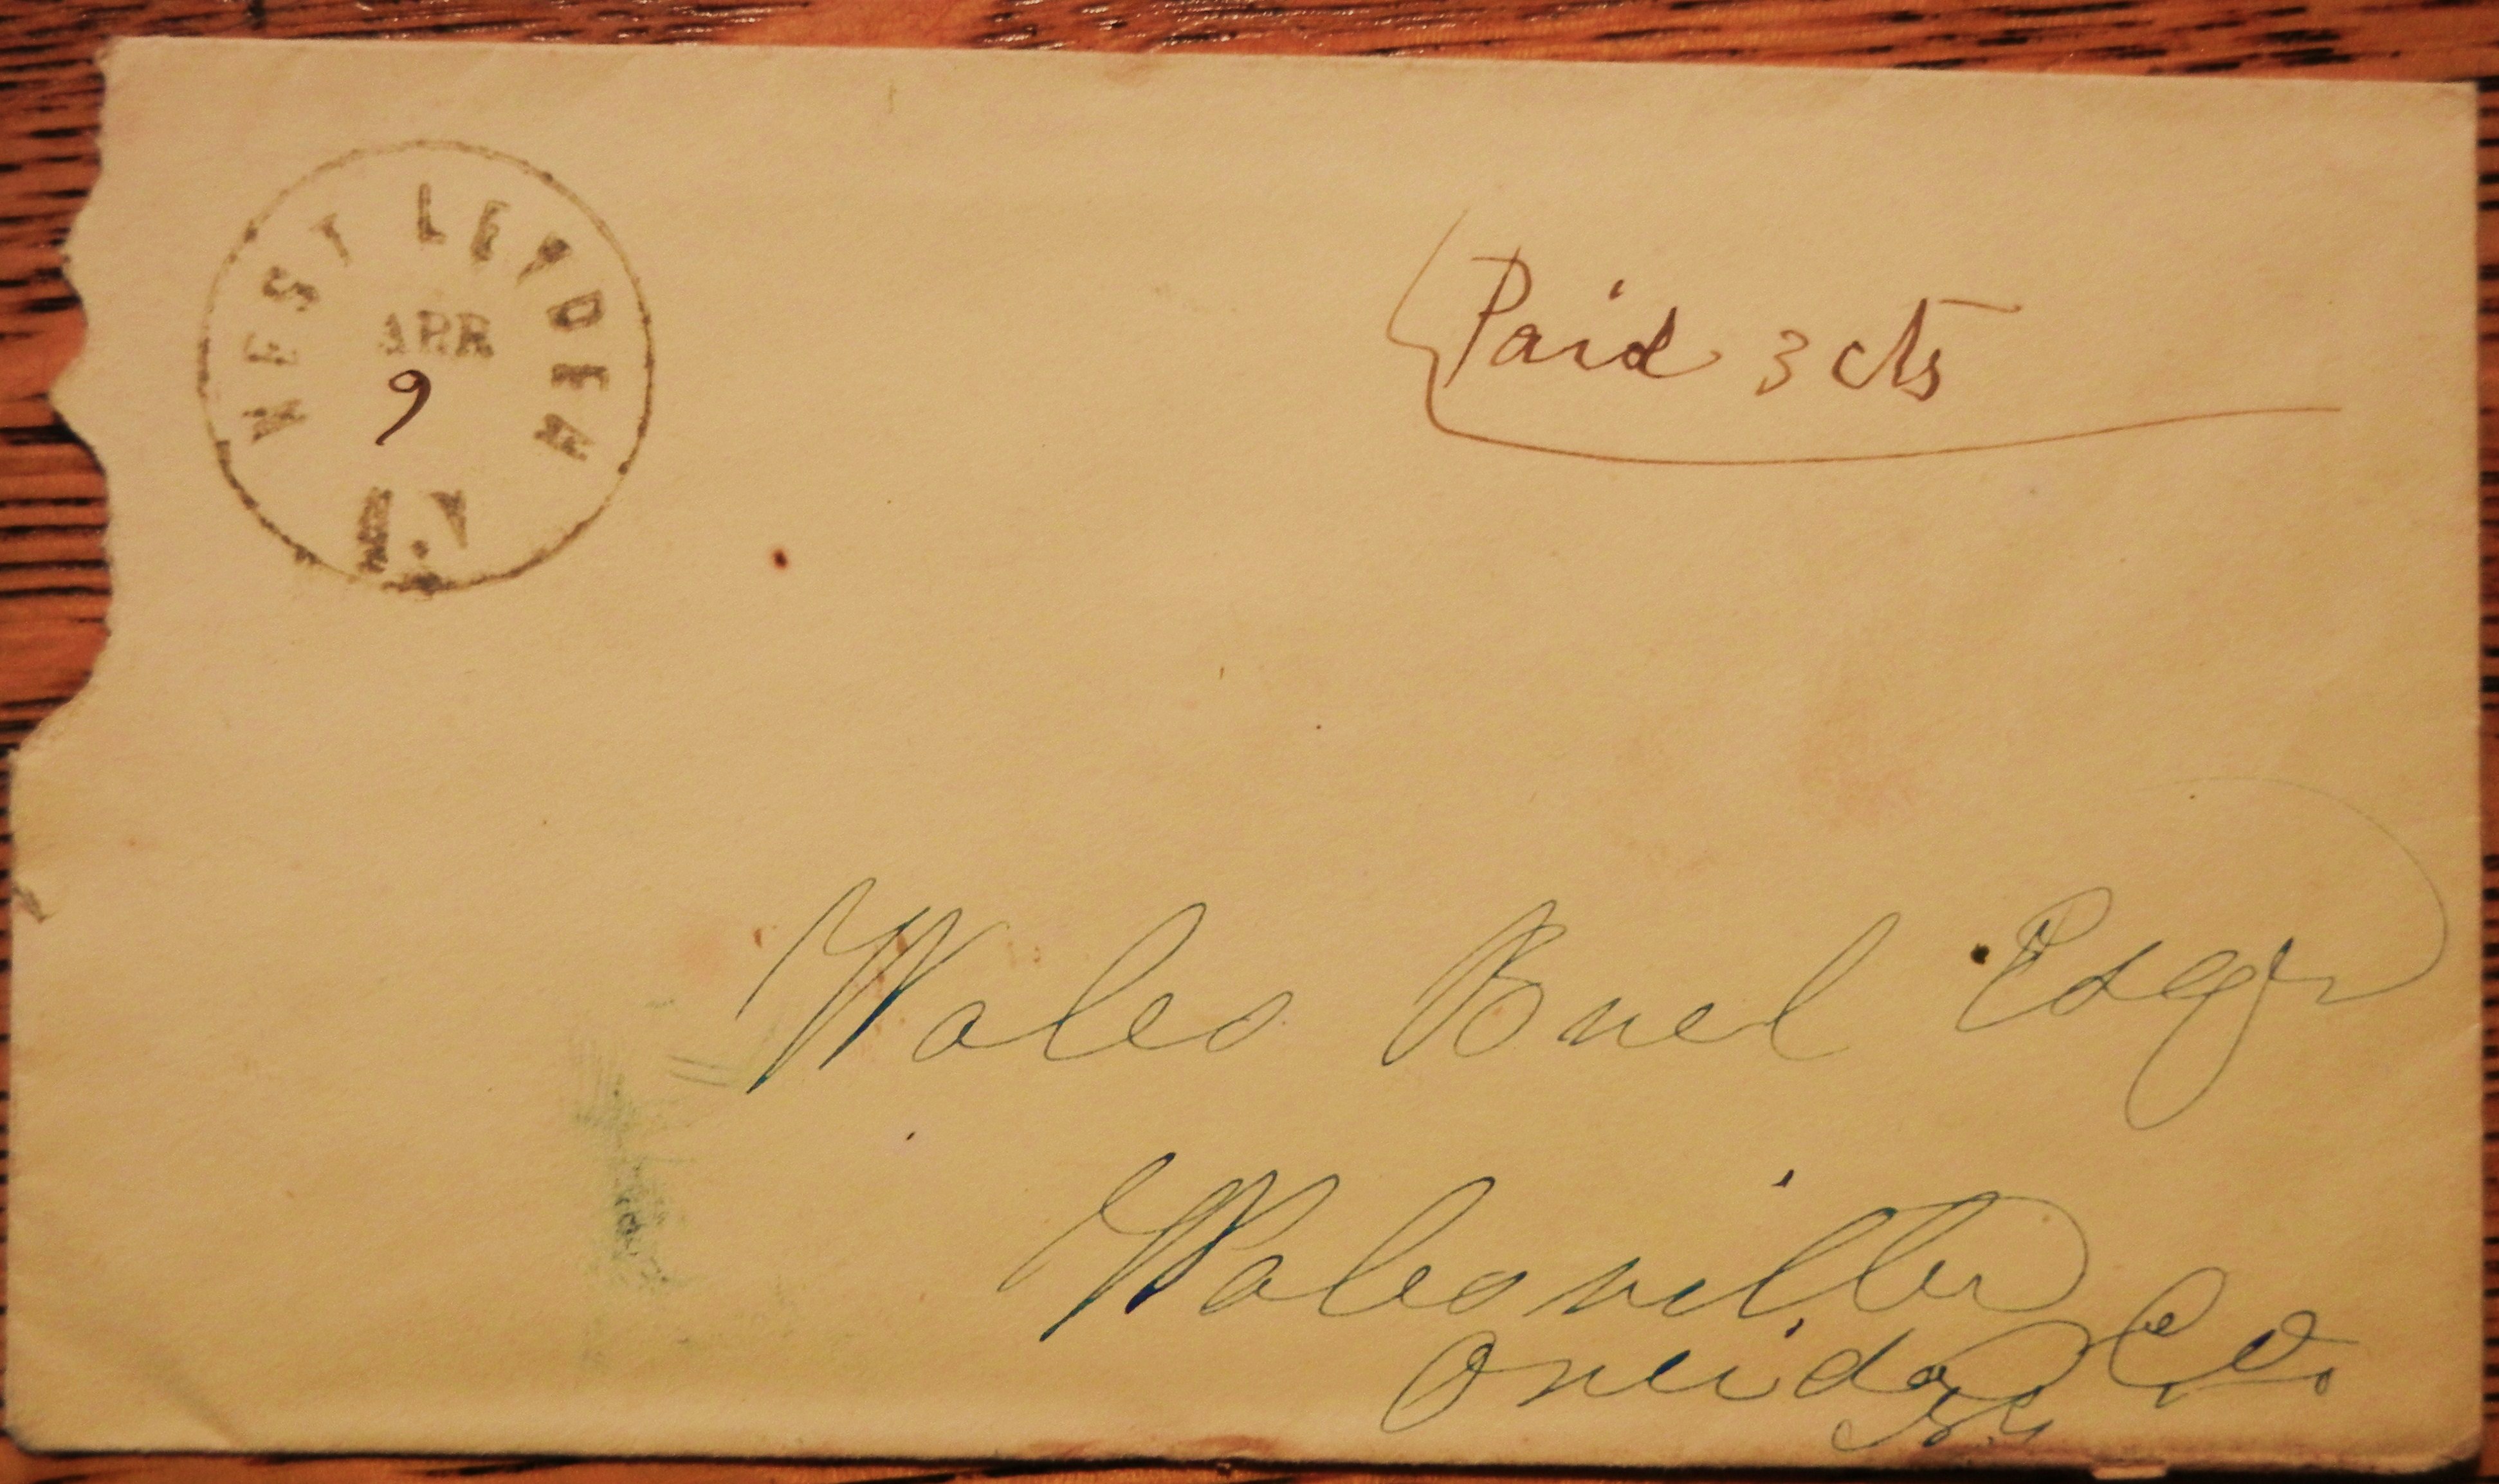 WEST LEYDEN
APR
9
N.Y
Paid 3 cts
Wales Buel Esqr
Walesville
Oneida Co.
N.Y.